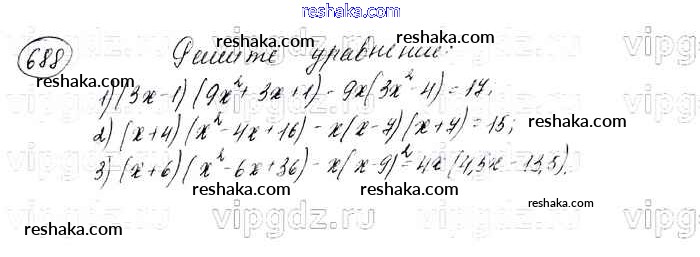 reshaka.com
688 Решите уравнение:
reshaka.com
1) (3x-1)(9x²+3x+1) - 9x(3x²-4) = 17;
2) (x+4)(x²-4x+16) - x(x-7)(x+7) = 15;
3) (x+6)(x²-6x+36) - x(x-9)² = 4x(4,5x-13,5).
reshaka.com reshaka.com reshaka.com
vipgdz.ru vipgdz.ru vipgdz.ru
reshaka.com reshaka.com